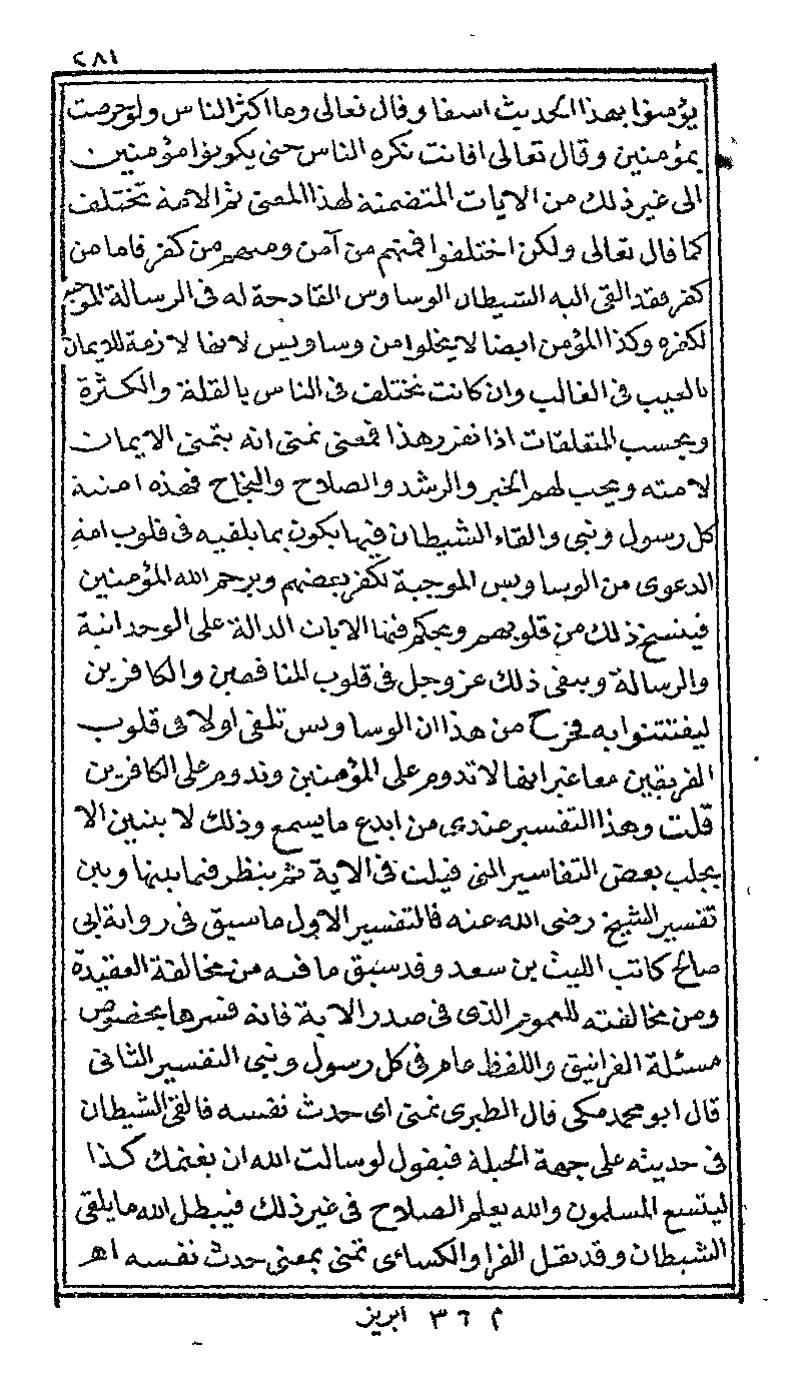 ٢٨١
يؤمنوا بهذا الحديث اسفا وقال تعالى وما اكثر الناس ولو حرصت
بمؤمنين وقال تعالى افانت تكره الناس حتى يكونوا مؤمنين
الى غير ذلك من الايات المتضمنة لهذا المعنى ثم الامة تختلف
كما قال تعالى ولكن اختلفوا فمنهم من آمن ومنهم من كفر فاما من
كفر فقد القى اليه الشيطان الوساوس القادحة له فى الرسالة الموجبة
لكفره وكذا المؤمن ايضا لا يخلوا من وساويس لانها لازمة للايمان
بالغيب فى الغالب وان كانت تختلف فى الناس بالقلة والكثرة
وبحسب المتعلقات اذا تقرر هذا فمعنى تمنى انه يتمنى الايمان
لامته ويحب لهم الخير والرشد والصلاح والنجاح فهذه امنية
كل رسول ونبى والقاء الشيطان فيها يكون بما يلقيه فى قلوب امة
الدعوى من الوساويس الموجبة لكفر بعضهم ويرحم الله المؤمنين
فينسخ ذلك من قلوبهم ويحكم فيها الايات الدالة على الوحدانية
والرسالة ويبقى ذلك عز وجل فى قلوب المنافقين والكافرين
ليفتتنوا به فخرج من هذا ان الوساويس تلقى اولا فى قلوب
الفريقين معا غير انها لا تدوم على المؤمنين وتدوم على الكافرين
قلت وهذا التفسير عندى من ابدع ما يسمع وذلك لا يتبين الا
بجلب بعض التفاسير التى قيلت فى الاية ثم ينظر فيما بينها وبين
تفسير الشيخ رضى الله عنه فالتفسير الاول ما سبق فى رواية ابى
صالح كاتب الليث بن سعد وقد سبق ما فيه من مخالفة العقيدة
ومن مخالفته للعموم الذى فى صدر الاية فانه فسرها بخصوص
مسئلة الغرانيق واللفظ عام فى كل رسول ونبى التفسير الثانى
قال ابو محمد مكى قال الطبرى تمنى اى حدث نفسه فالقى الشيطان
فى حديثه على جهة الحيلة فيقول لو سالت الله ان يغنمك كذا
ليتسع المسلمون والله يعلم الصلاح فى غير ذلك فيبطل الله ما يلقى
الشيطان وقد نقل الفرا والكساءى تمنى بمعنى حدث نفسه اهـ
م ٣٦ ابريز